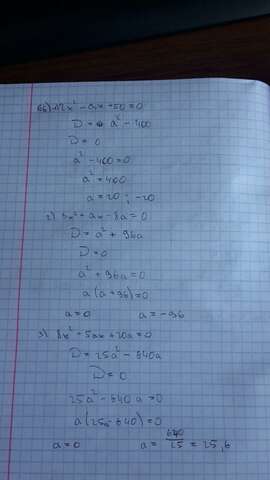 2x² - ax + 50 = 0
D = a² - 400
D = 0
a² - 400 = 0
a² = 400
a = 20 ; -20
2) 3x² + ax - 8a = 0
D = a² + 96a
D = 0
a² + 96a = 0
a (a + 96) = 0
a = 0 a = -96
3) 8x² + 5ax + 20a = 0
D = 25a² - 640a
D = 0
25a² - 640 a = 0
a (25a - 640) = 0
a = 0 a = 640/25 = 25,6